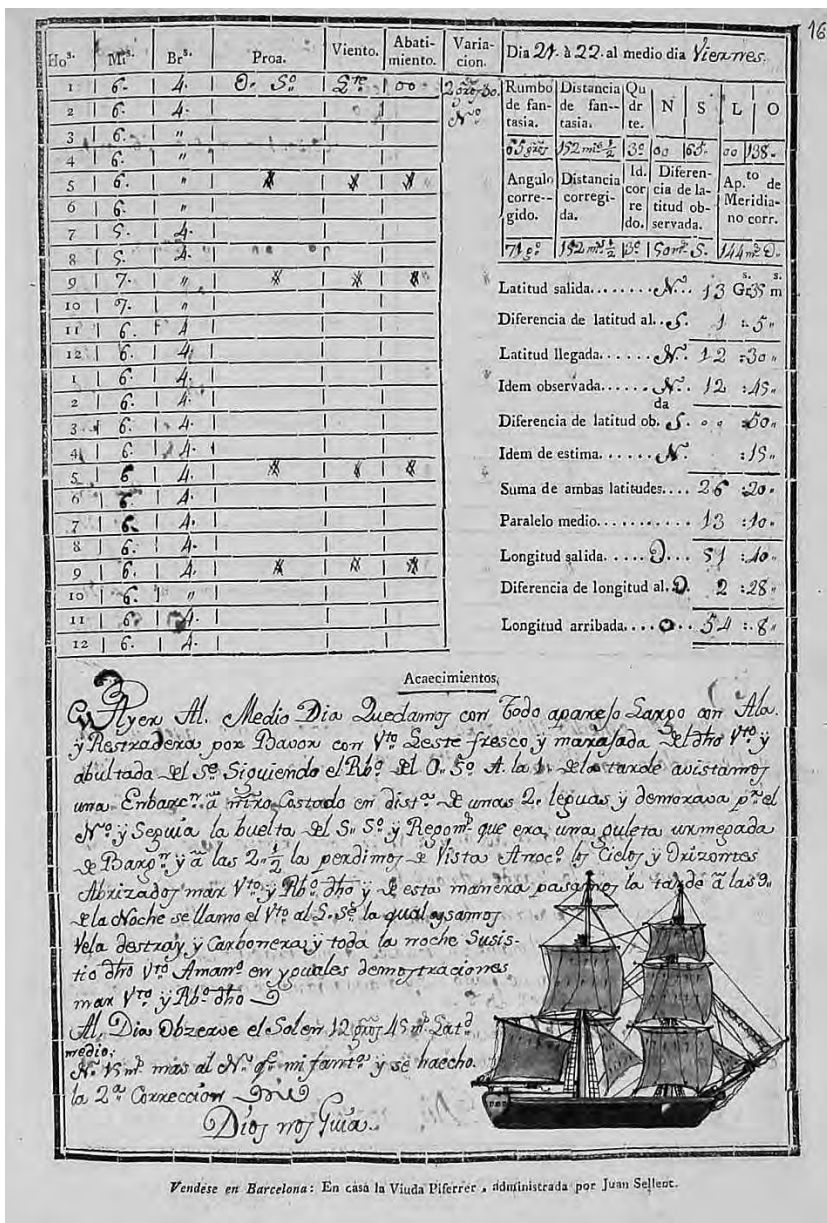 16
Ho.s Mi.s Br.s Proa. Viento. Abati-miento. Varia-cion. Dia 21. à 22. al medio dia Viernes.
1 6. 4. O. So. Ste. 00
2 6. 4. No
3 6. "
4 6. "
5 6. "
6 6. "
7 5. 4.
8 5. 4.
9 7. "
10 7. "
11 6. 4
12 6. 4.
1 6. 4.
2 6. 4.
3 6. 4.
4 6. 4.
5 6 4.
6 6. 4.
7 6. 4.
8 6. 4.
9 6. 4.
10 6. "
11 6. 4.
12 6. 4.
Rumbo de fan-tasia. Distancia de fan--tasia. Qu dr te. N S L O
65 gros 152 ms ½ 3º 00 65. 00 138.
Angulo corre--gido. Distancia corregi-da. Id. cor re do. Diferen-cia de la-titud ob-servada. Ap.to de Meridia-no corr.
71 gº 152 ms ½ 3º 50 ms S. 144 ms O.
s. s.
Latitud salida........N.. 13 Gr:35 m
Diferencia de latitud al..S. 1 :5"
Latitud llegada......N. 12 :30"
Idem observada......N. 12 :45"
da
Diferencia de latitud ob. S. 0 0 :50"
Idem de estima......N. :15"
Suma de ambas latitudes.... 26 :20"
Paralelo medio........... 13 :10"
Longitud salida.....O... 51 :40"
Diferencia de longitud al.O. 2 :28"
Longitud arribada....O.. 54 :8"
Acaecimientos,
Ayer Al. Medio Dia Quedamos con Todo aparejo Largo con Ala.
y Restradera por Bavor con Vto Leste fresco y marajada del dho Vto y
abultada del Se. Siguiendo el Rbo. del O. So. A. la 1. de la tarde avistamos
una Enbarcn. à nro Costado en dista. de unas 2. leguas y demorava pr. el
No. y Seguia la buelta del S. So. y Regoms. que era una guleta
de Bargn. y à las 2. ½ la perdimos de Vista Anoco. los Cielos y Orizontes
Abrizados mar Vto. y Rbo. dho y de esta manera pasamos la tarde à las 9.
de la Noche se llamo el Vto al S. Se. la qual
Vela destray y Carbonera y toda la noche Susis-
tio dho Vto Amano. en yguales demostraciones
mar Vto y Rbo. dho
Al. Dia Obzerve el Sol en 12 gros 45 ms Latd.
medio;
No. 15 ms. mas al No. qe. mi fanta. y se haecho.
la 2a. Correccion
Dios nos Guia..
Vendese en Barcelona: En casa la Viuda Piferrer, administrada por Juan Sellent.